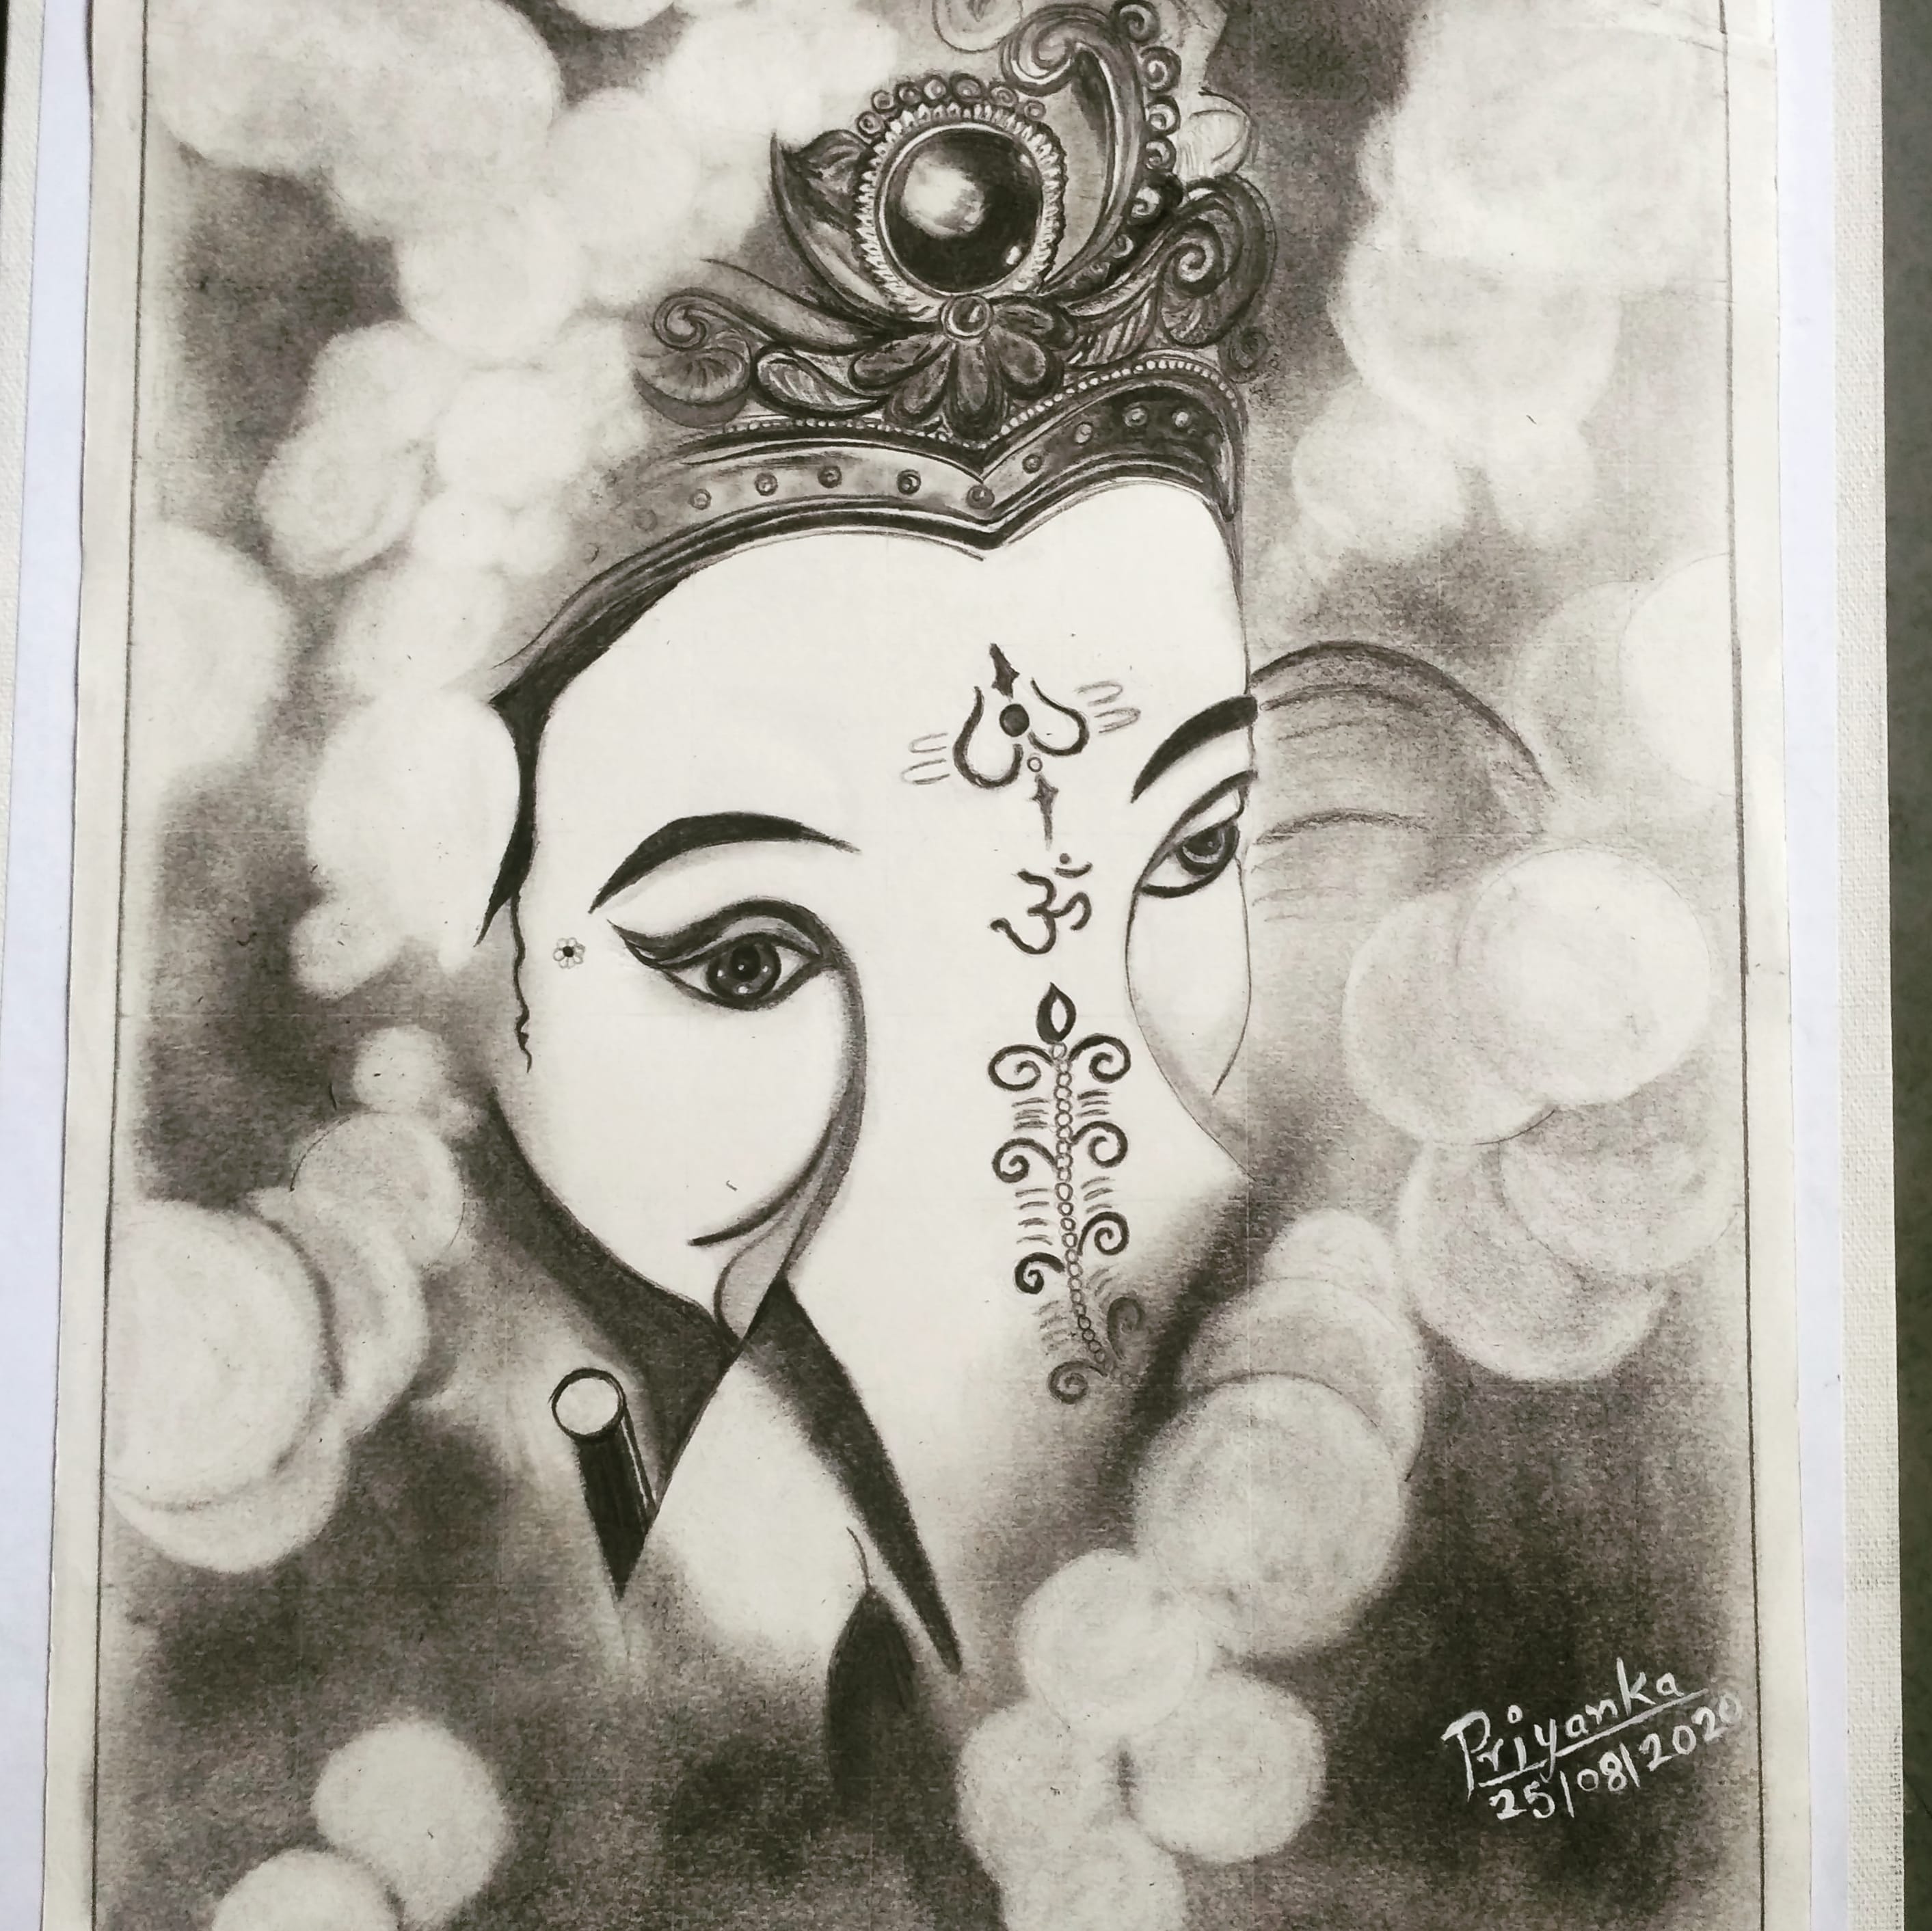 ॐ
Priyanka
25/08/2020